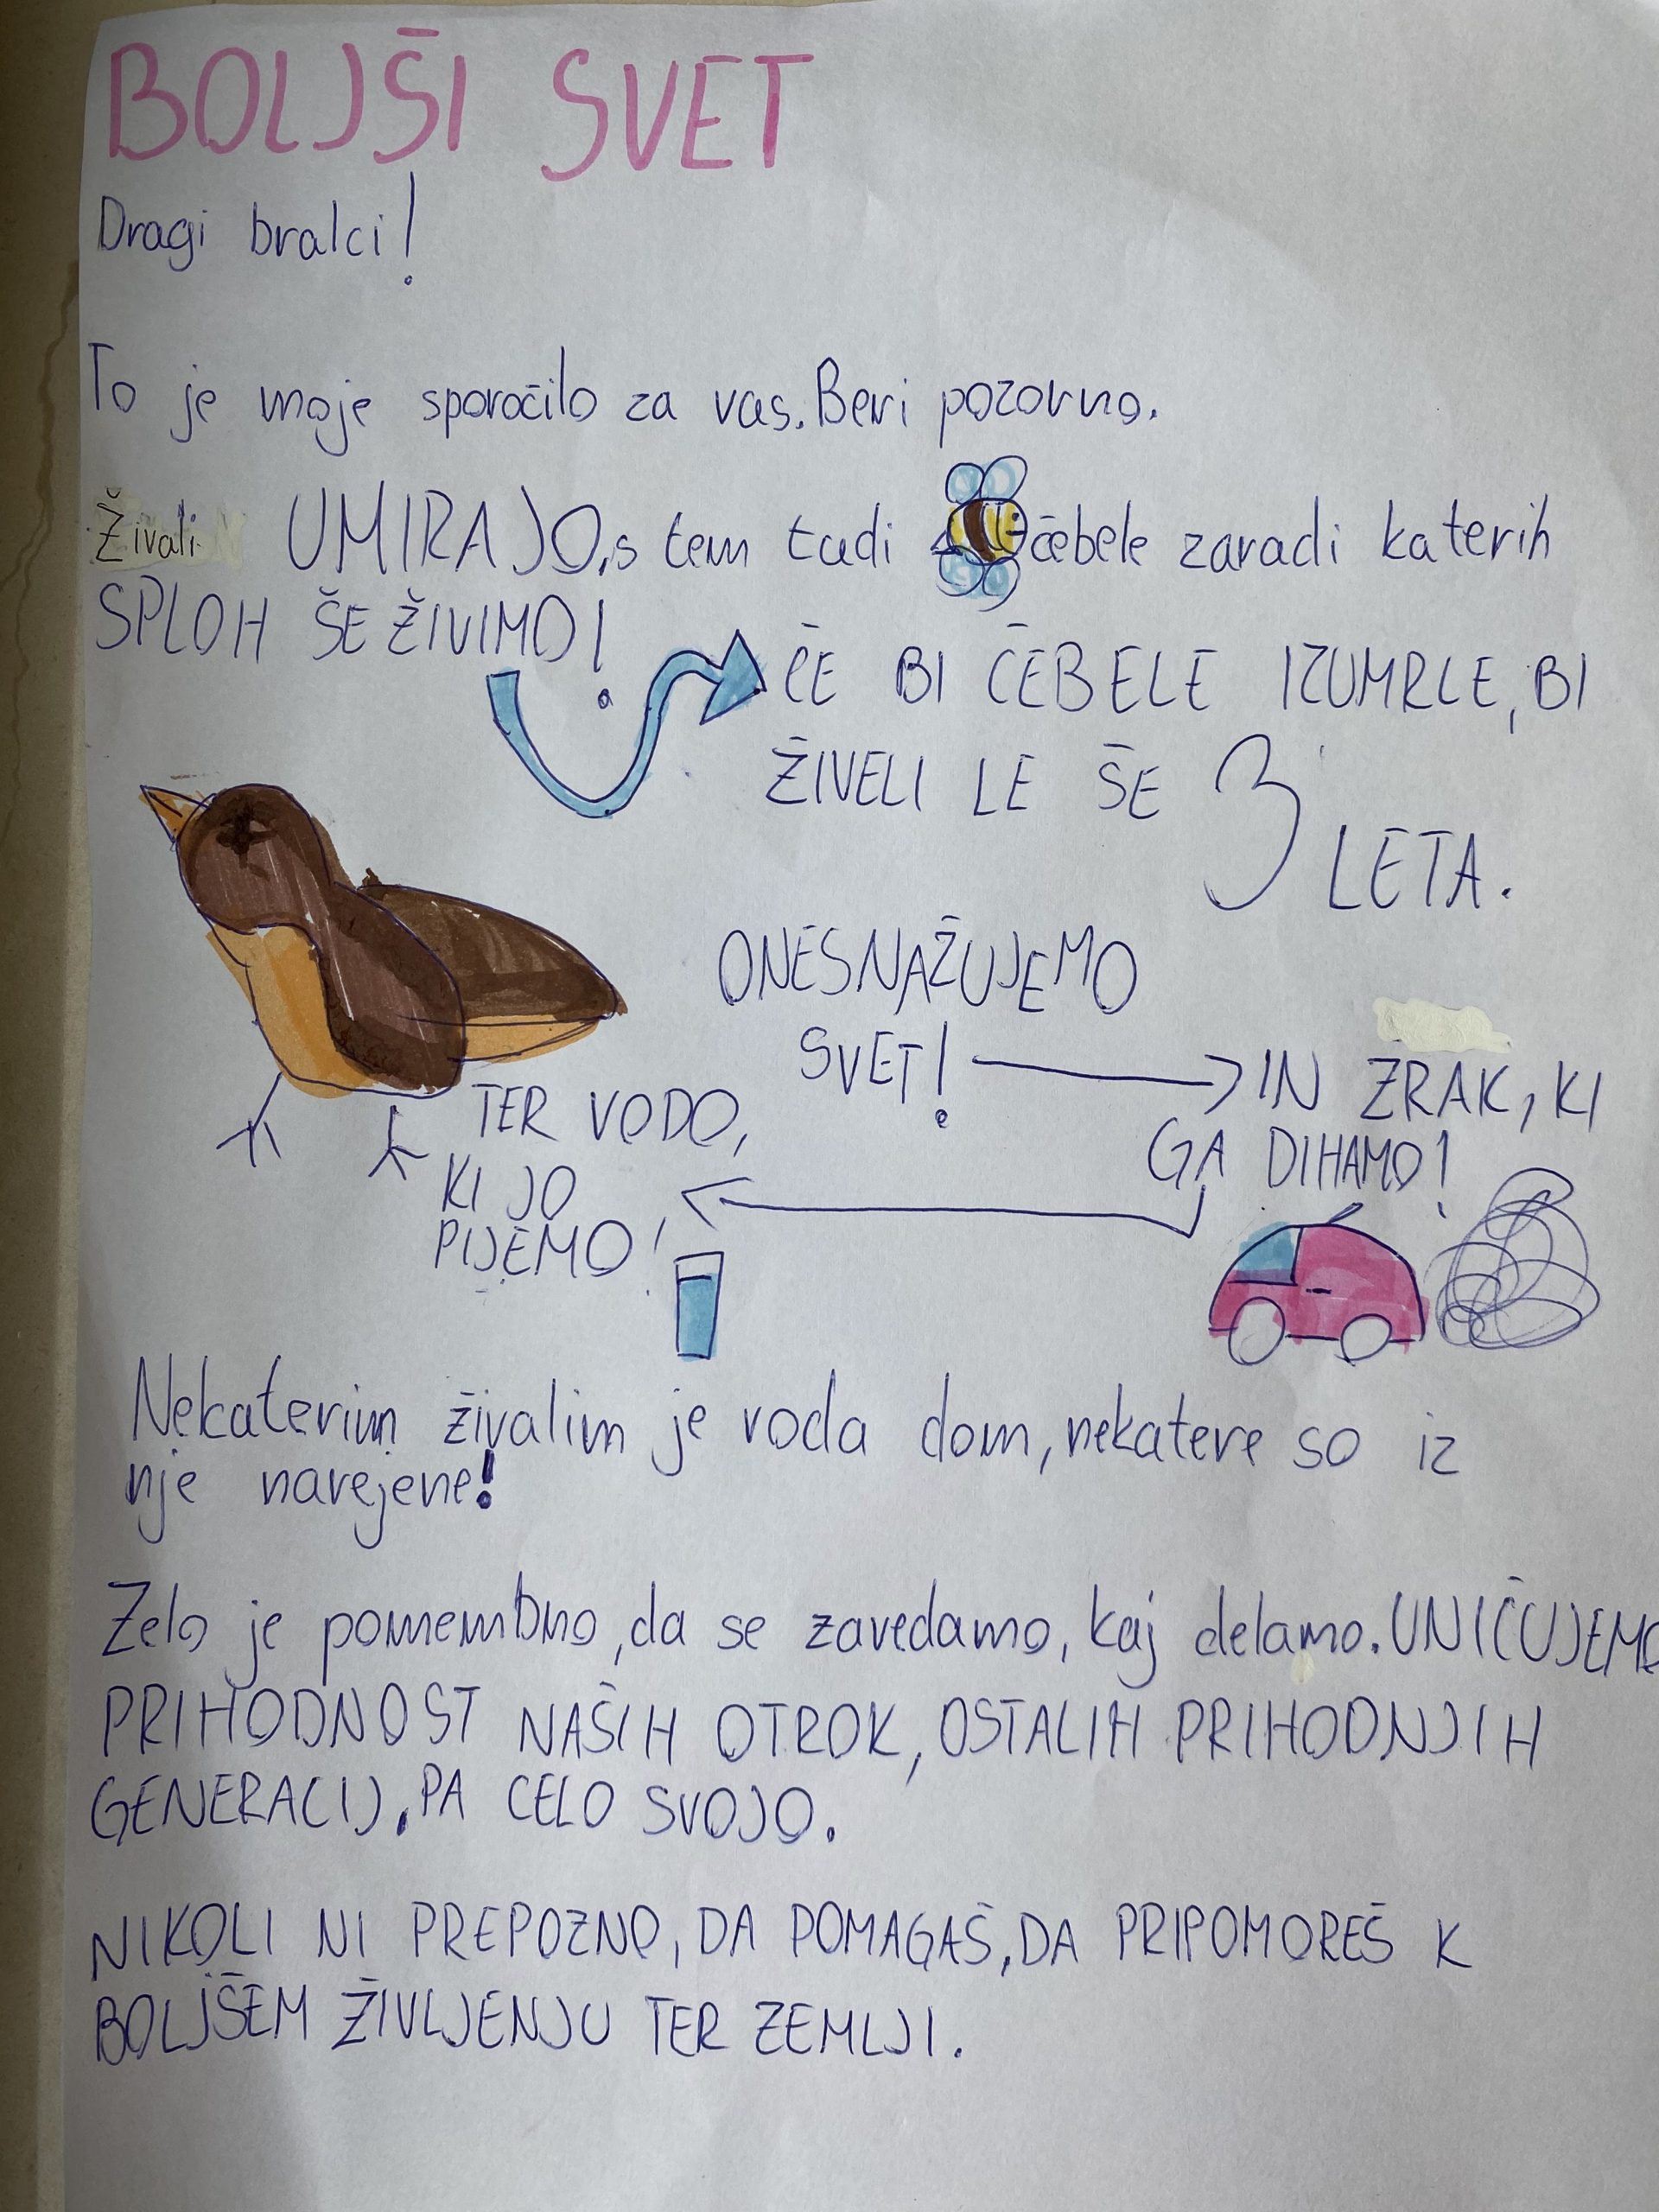 BOLJŠI SVET
Dragi bralci!
To je moje sporočilo za vas. Beri pozorno.
Živali UMIRAJO, s tem tudi čebele zaradi katerih
SPLOH ŠE ŽIVIMO!
ČE BI ČEBELE IZUMRLE, BI
ŽIVELI LE ŠE 3
LETA.
ONESNAŽUJEMO
SVET!
IN ZRAK, KI
GA DIHAMO!
TER VODO,
KI JO
PIJEMO!
Nekaterim živalim je voda dom, nekatere so iz
nje narejene!
Zelo je pomembno, da se zavedamo, kaj delamo. UNIČUJEMO
PRIHODNOST NAŠIH OTROK, OSTALIH PRIHODNJIH
GENERACIJ, PA CELO SVOJO.
NIKOLI NI PREPOZNO, DA POMAGAŠ, DA PRIPOMOREŠ K
BOLJŠEM ŽIVLJENJU TER ZEMLJI.